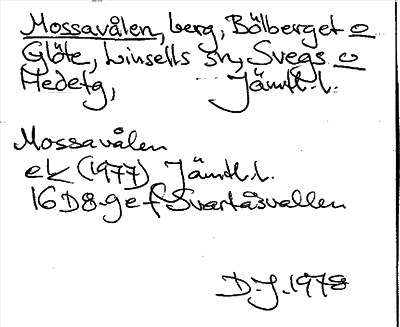 Mossavålen, berg, Bölberget o
Glöte, Linsells sn, Svegs o
Hedetg, Jämtl.l.
Mossavålen
ek (1977) Jämtl.l.
16D8-gef Svartåsvallen
D.J. 1978